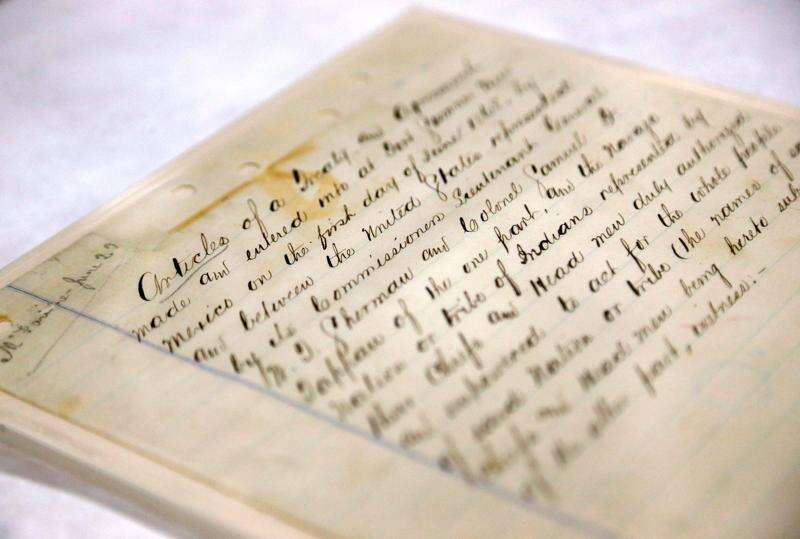 Articles of a Treaty and Agreement
made and entered into at Fort Sumner New
Mexico on the first day of June 1868. by
and between the United States represented
by its Commissioners Lieutenant General
W. T. Sherman and Colonel Samuel F.
Tappan of the one part and the Navajo
Nation or tribe of Indians represented by
their Chiefs and Head men duly authorized
and empowered to act for the whole people
of said Nation or tribe (the names of
Chiefs and Head men being hereto
of the other part, witness:-
June